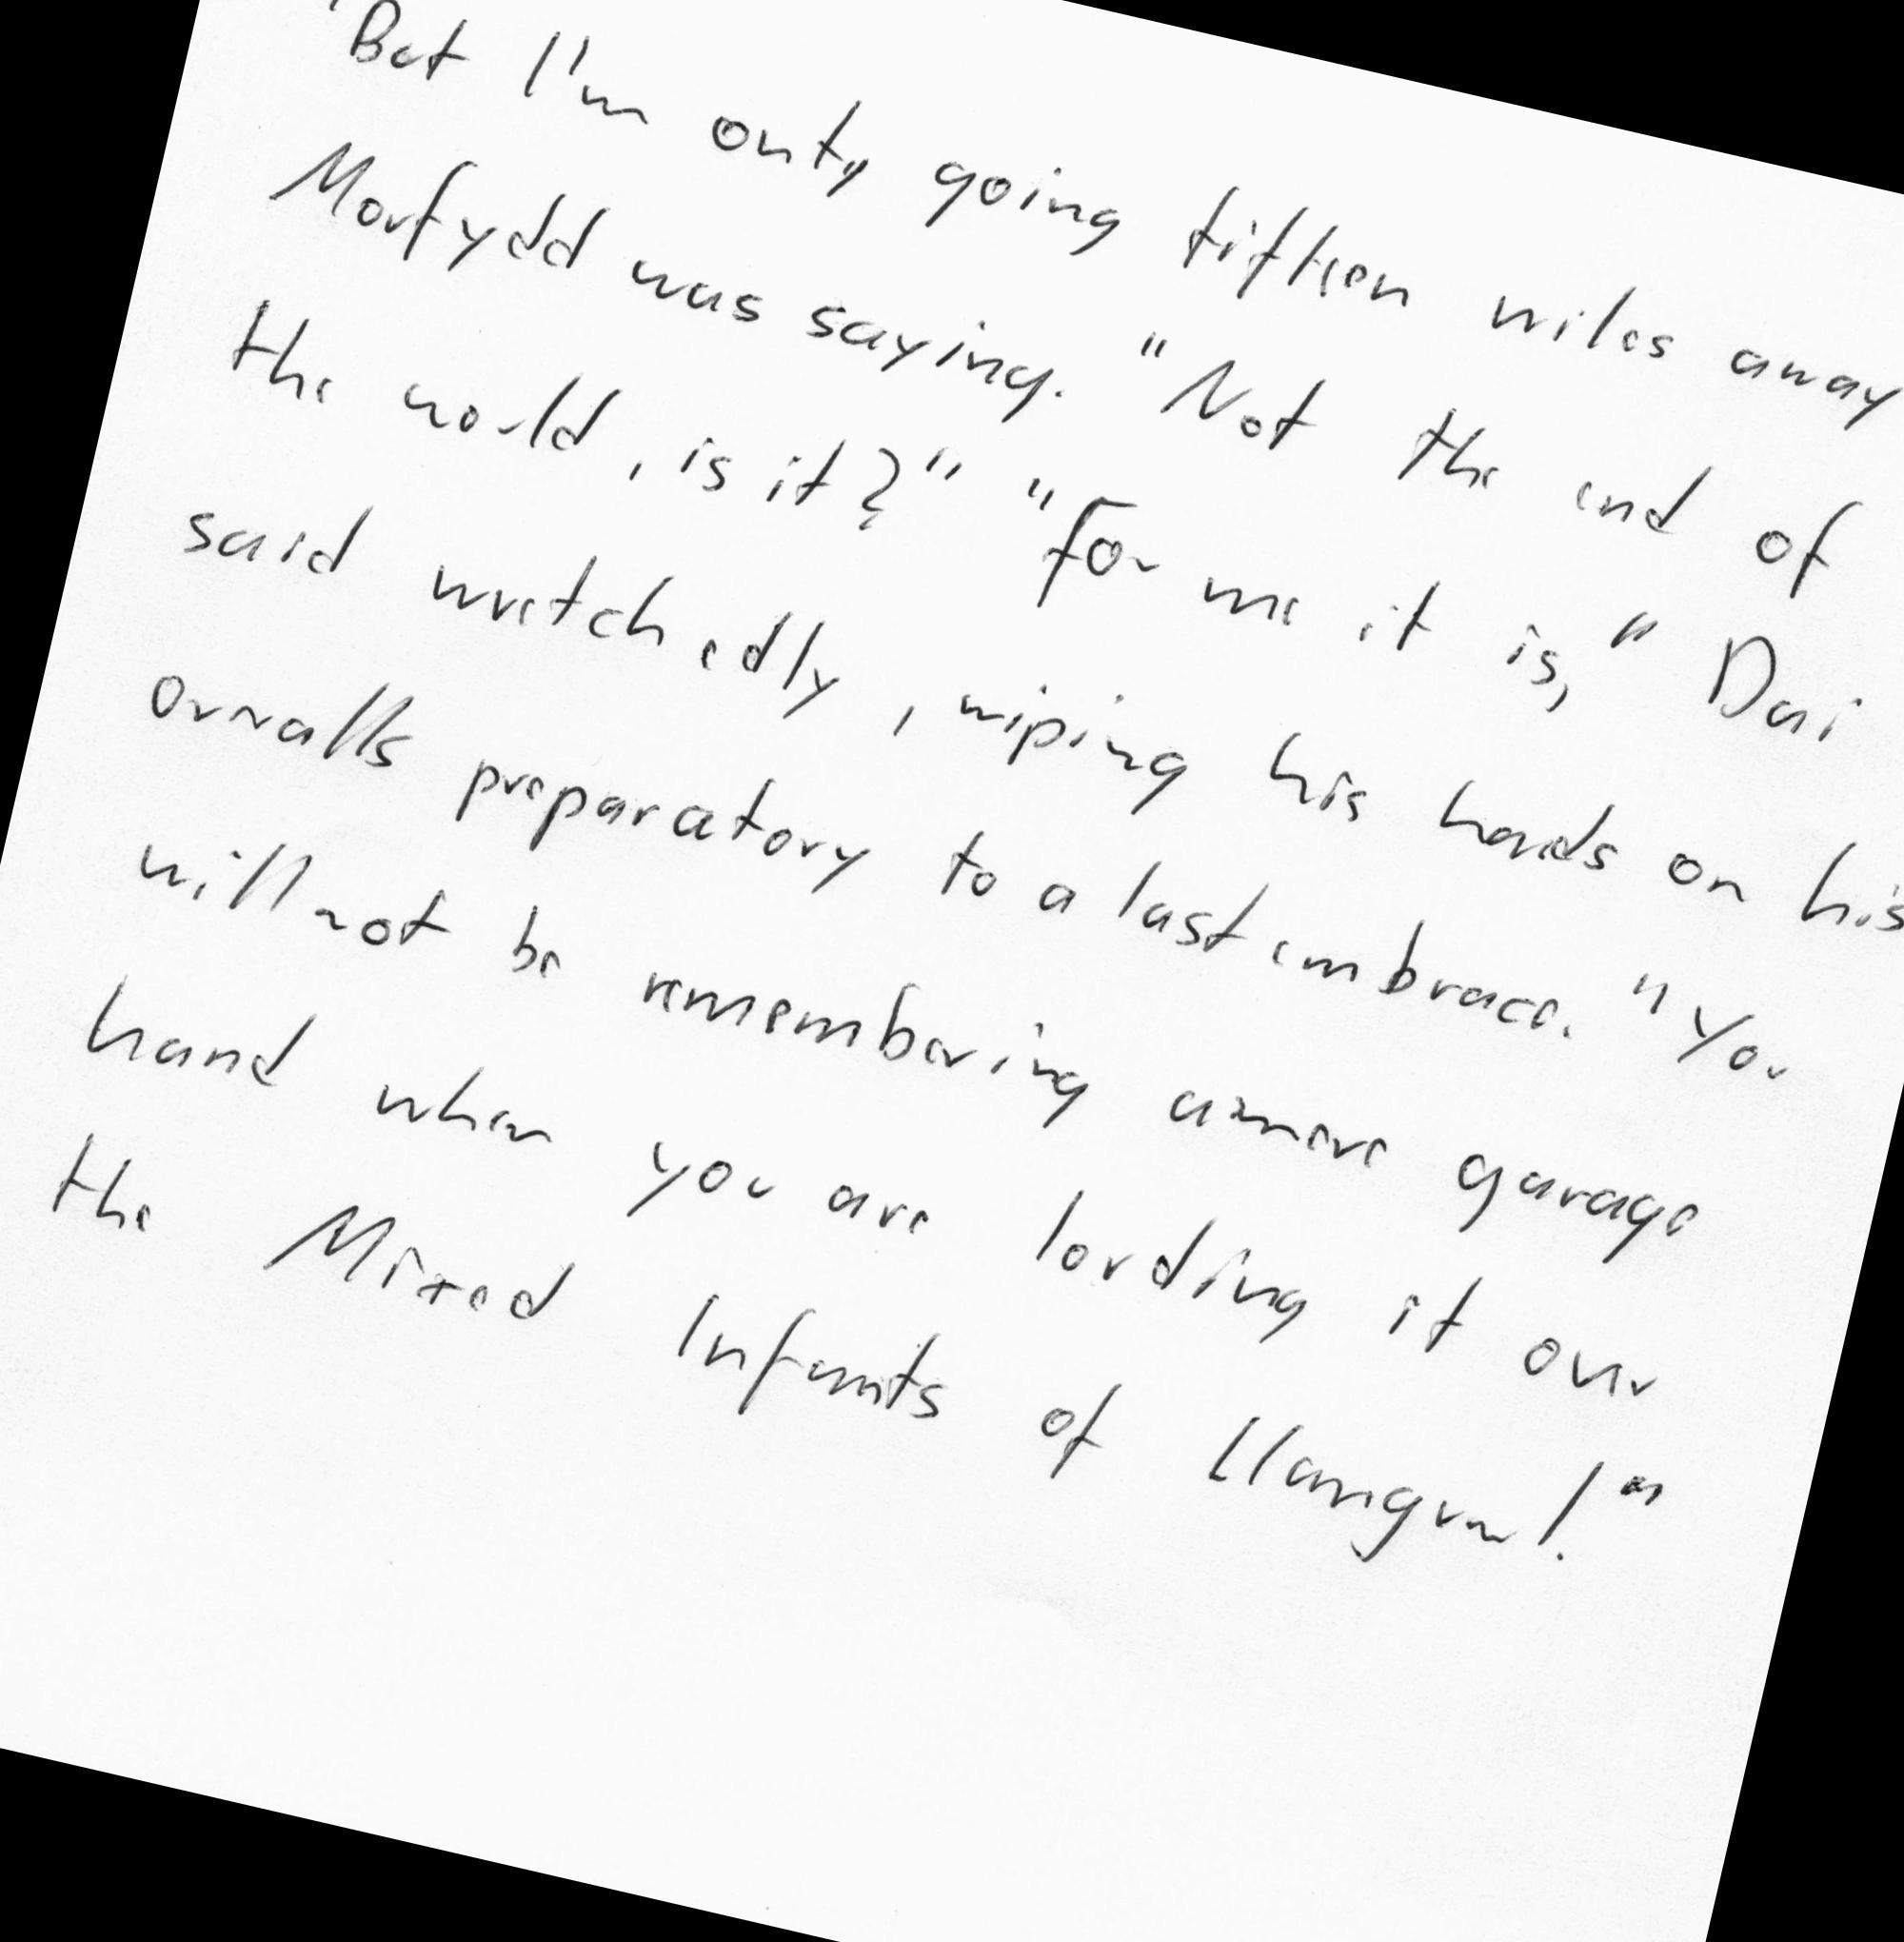 "But I'm only going fifteen miles away
Morfydd was saying. "Not the end of
the world, is it?" "For me it is," Dai
said wretchedly, wiping his hands on his
overalls preparatory to a last embrace. "You
will not be remembering a mere garage
hand when you are lording it over
the Mixed Infants of Llangrw!"